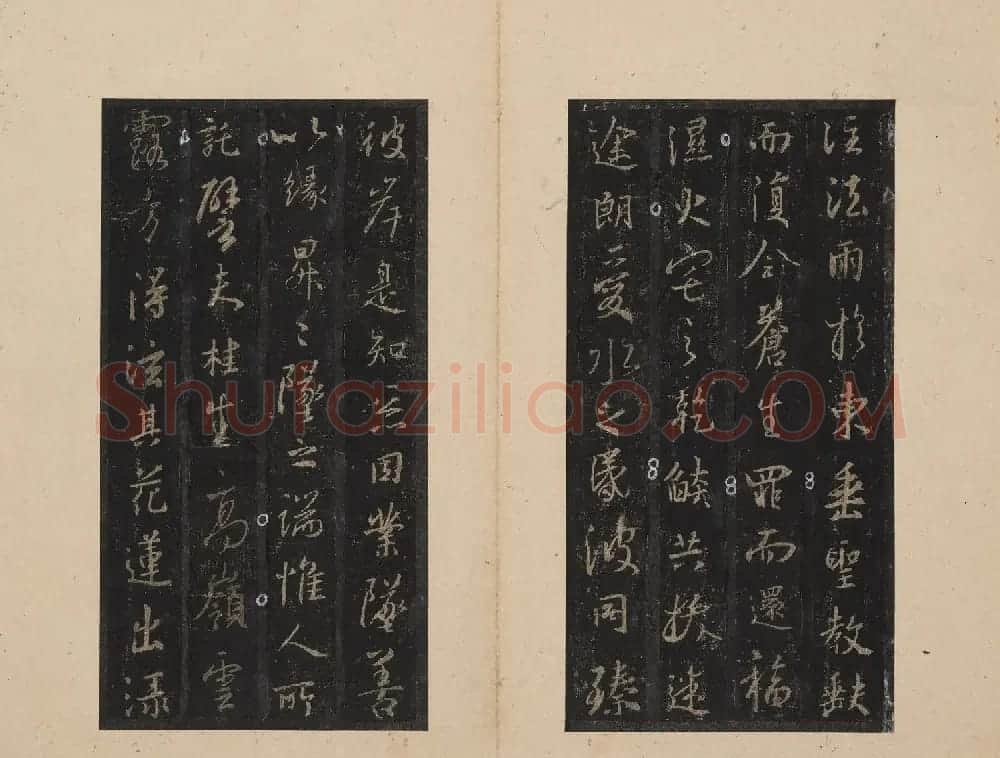 注法雨於東垂聖教缺
而復全蒼生罪而還福
濕火宅之乾燄共拔迷
途朗愛水之昏波同臻
彼岸是知惡因業墜善
以緣昇々墜之端惟人所
託譬夫桂生高嶺雲
露方得泫其花蓮出淥
Shufaziliao.COM